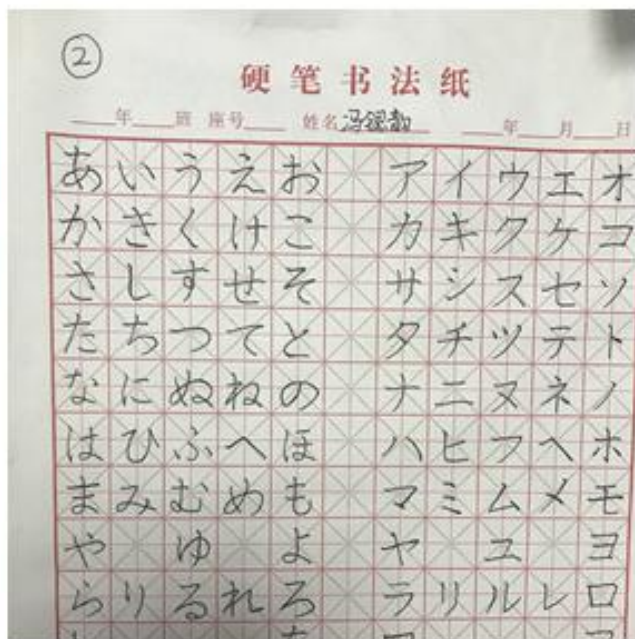 ②
硬笔书法纸
年 班 座号 姓名 年 月 日
あいうえお アイウエオ
かきくけこ カキクケコ
さしすせそ サシスセソ
たちつてと タチツテト
なにぬねの ナニヌネノ
はひふへほ ハヒフヘホ
まみむめも マミムメモ
や ゆ よ ヤ ユ ヨ
らりるれろ ラリルレロ